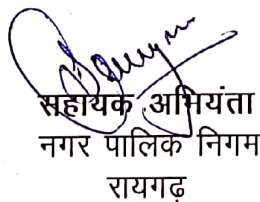 सहायक अभियंता
नगर पालिक निगम
रायगढ़